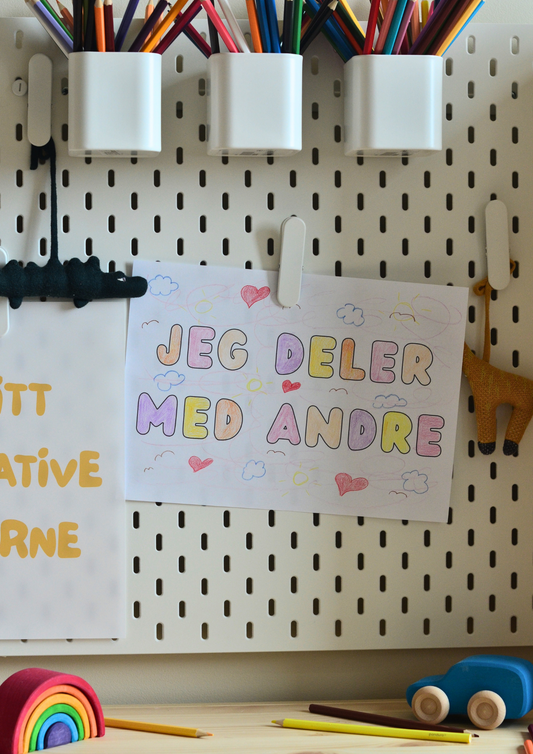 JEG DELER
MED ANDRE
ITT
ATIVE
RNE